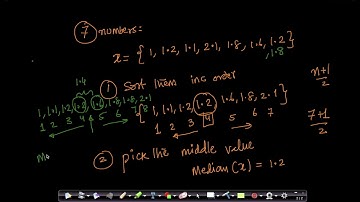 7 numbers:
x = { 1, 1.2, 1.1, 2.1, 1.8, 1.6, 1.1 }
, 1.8
1.4
① Sort them in order
n+1/2
1, 1.1, 1.2, 1.2, 1.6, 1.8, 1.8, 2.1
{ 1, 1.1, 1.1, 1.2, 1.6, 1.8, 2.1 }
1 2 3 4 5 6 7 8
1 2 3 4 5 6 7
7+1/2
② pick the middle value
Median (x) = 1.2